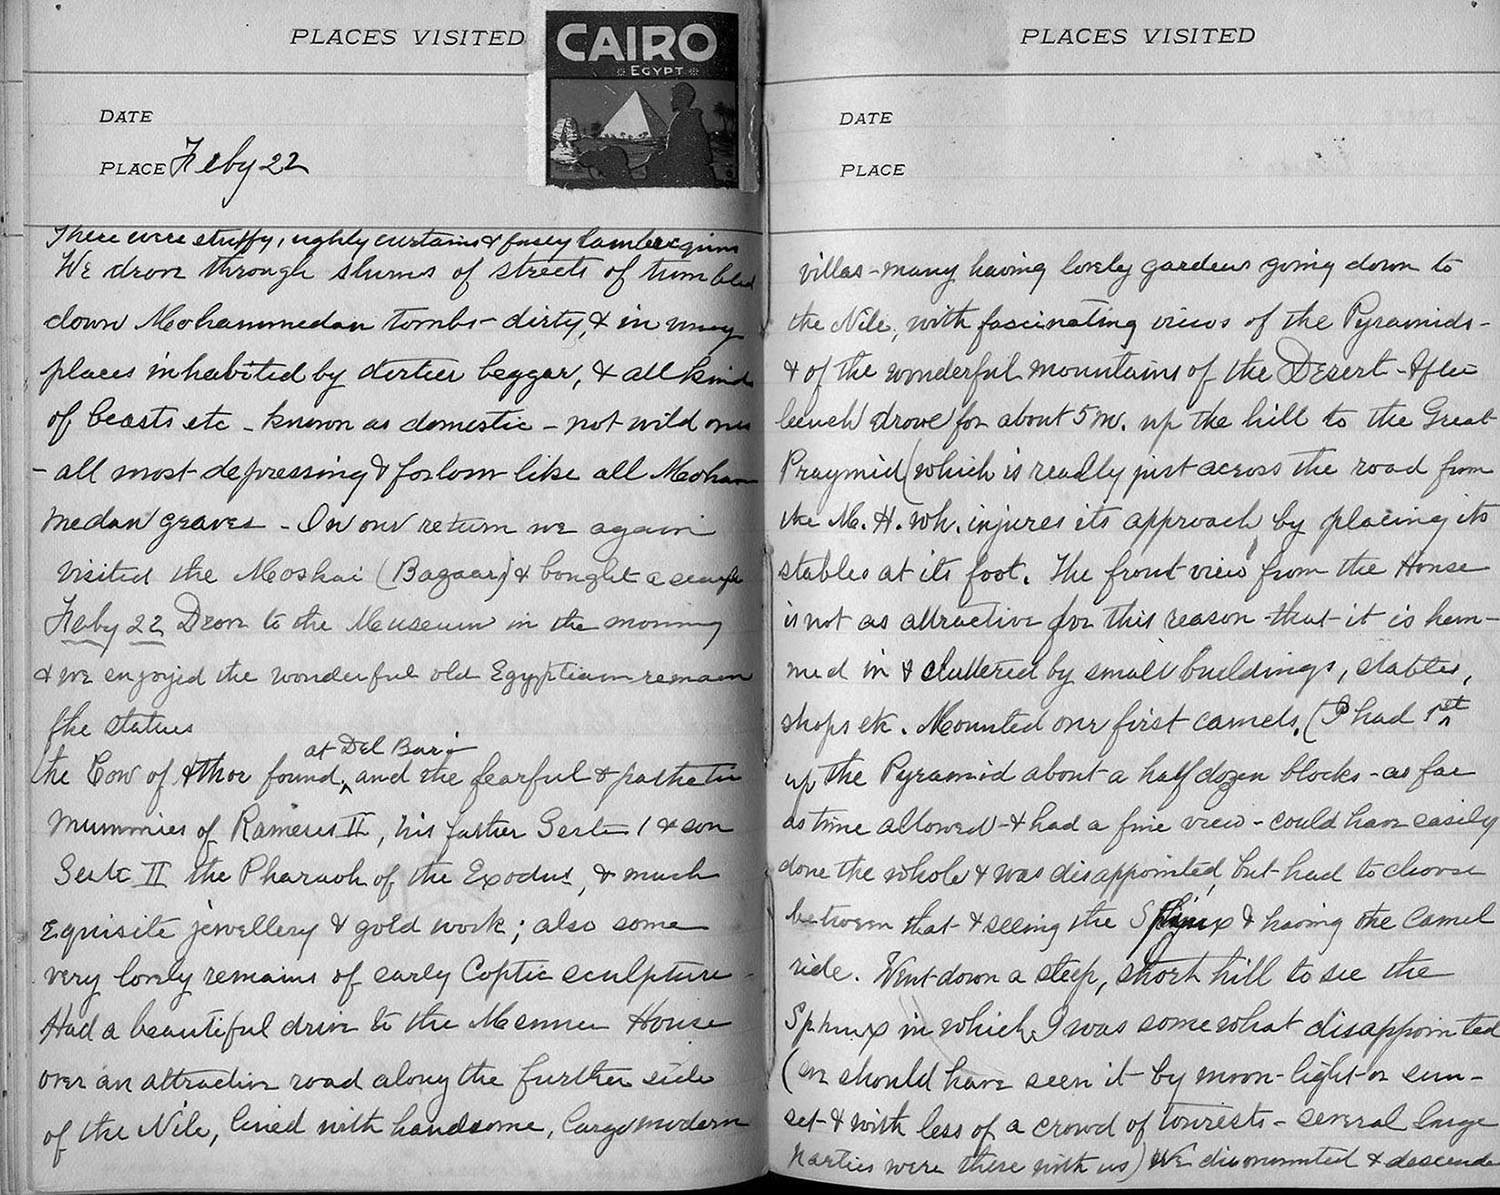 PLACES VISITED
CAIRO
EGYPT
DATE
PLACE Feby 22
There were stuffy, ughly curtains & fusey lambrequins
We drove through slums of streets of tumbled
down Mohammedan tombs - dirty, & in many
places inhabited by dirtier beggar, & all kinds
of beasts etc - known as domestic - not wild ones
- all most depressing & forlorn like all Moham
medan graves - On our return we again
visited the Moshai (Bazaar) & bought a
Feby 22 Drove to the Museum in the morning
& we enjoyed the wonderful old Egyptian remain
the statues
at Del Bari
the Cow of Athor found, and the fearful & pathetic
Mummies of Rameses II, his father Seti 1 & son
Seti II the Pharaoh of the Exodus, & much
exquisite jewellery & gold work; also some
very lovely remains of early Coptic sculpture -
Had a beautiful drive to the Menna House
over an attractive road along the further side
of the Nile, lined with handsome, large modern
PLACES VISITED
DATE
PLACE
villas - many having lovely gardens going down to
the Nile, with fascinating views of the Pyramids -
& of the wonderful mountains of the Desert - After
lunch drove for about 5 m. up the hill to the Great
Praymid (which is readly just across the road from
the M. H. wh. injures its approach by placing its
stables at its foot. The front view from the House
is not as attractive for this reason - that it is hem-
med in & cluttered by small buildings, stables,
shops etc. Mounted our first camels. (I had 1st
up the Pyramid about a half dozen blocks - as far
as time allowed - & had a fine view - could have easily
done the whole & was disappointed, but had to choose
between that & seeing the Sphinx & having the Camel
ride. Went down a steep, short hill to see the
Sphinx in which I was somewhat disappointed
(we should have seen it by moon-light or sun-
set - & with less of a crowd of tourists - several large
parties were there with us) We dismounted & descende